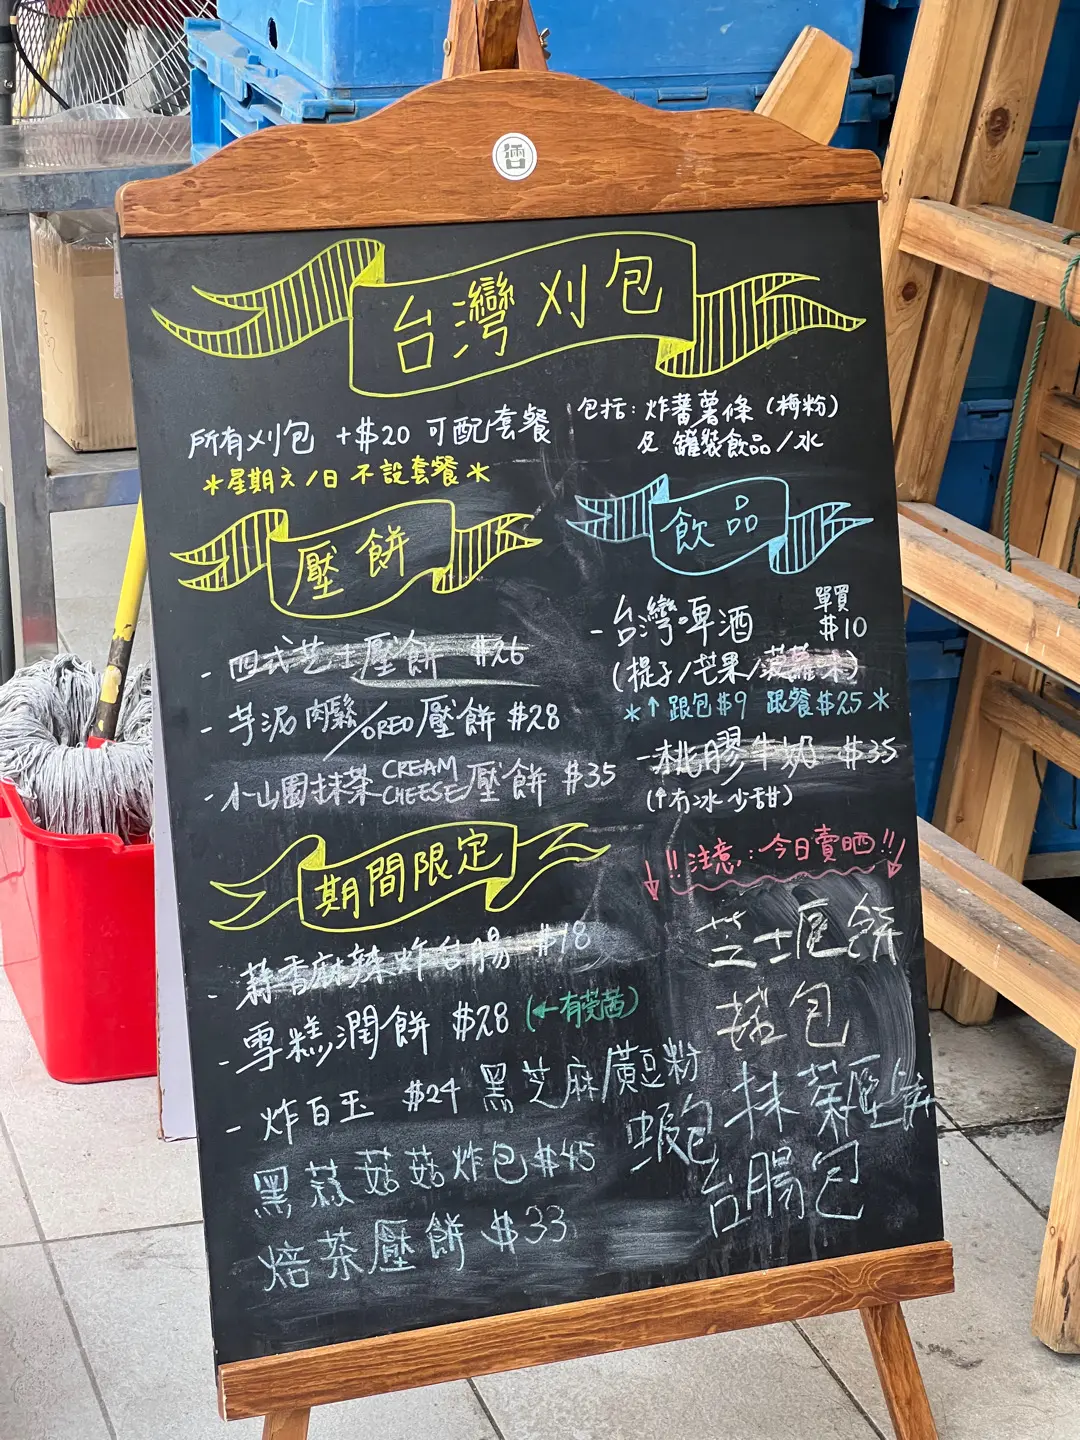 台灣刈包
所有刈包 +$20 可配套餐
*星期六/日 不設套餐*
包括: 炸蕃薯條 (梅粉)
及 罐裝飲品/水
壓餅
- 四式芝士壓餅 $26
- 芋泥肉鬆/OREO壓餅 $28
- 小山園抹茶CREAM CHEESE壓餅 $35
飲品
- 台灣啤酒 單買 $10
(提子/芒果/菠蘿味)
*↑跟包$9 跟餐$25*
- 桃膠牛奶 $35
(冇冰少甜)
期間限定
- 蒜香麻辣炸台腸 $18
- 雪糕潤餅 $28 (←有芫茜)
- 炸白玉 $24 黑芝麻/黃豆粉
黑菇菇炸包$45
焙茶壓餅 $33
!!注意: 今日賣晒!!
芝士壓餅
菇包
蝦包 抹茶壓餅
台腸包